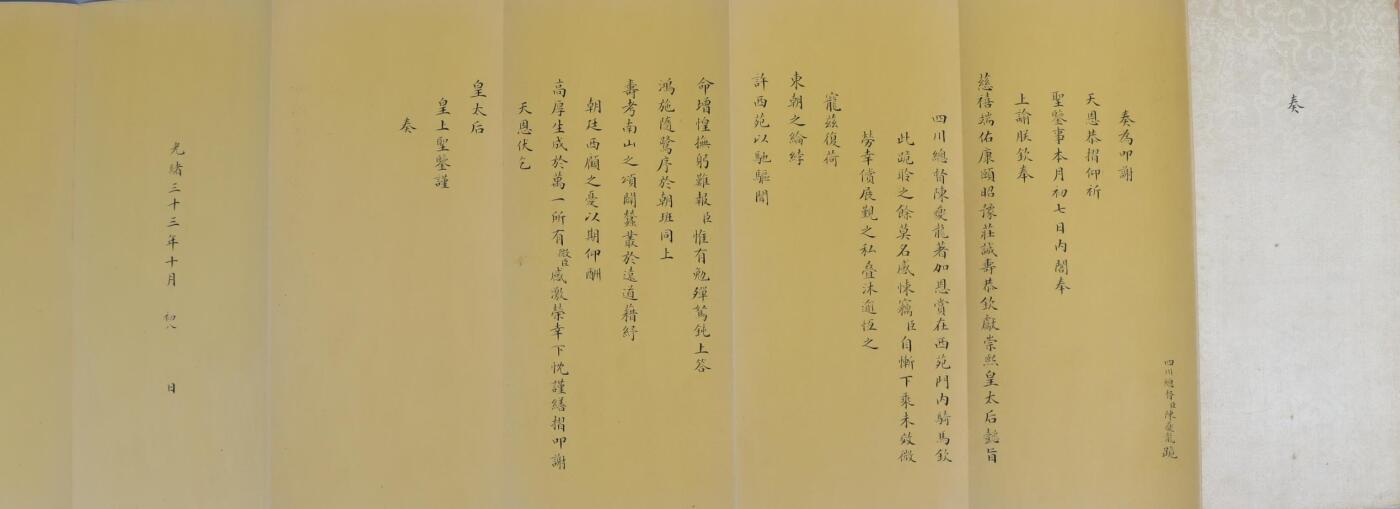 奏
四川總督臣陳夔龍跪
奏為叩謝
天恩恭摺仰祈
聖鑒事本月初七日內閣奉
上諭朕欽奉
慈禧端佑康頤昭豫莊誠壽恭欽獻崇熙皇太后懿旨
四川總督陳夔龍著加恩賞在西苑門內騎馬欽
此跪聆之餘莫名感悚竊臣自慚下乘未效微
勞幸償展覲之私疊沐逾恆之
寵茲復荷
東朝之綸綍
許西苑以馳驅聞
命增惶撫躬難報臣惟有勉殫駑鈍上答
鴻施隨鷺序於朝班同上
壽考南山之頌闢蠶叢於遠道藉紓
朝廷西顧之憂以期仰酬
高厚生成於萬一所有微臣感激榮幸下忱謹繕摺叩謝
天恩伏乞
皇太后
皇上聖鑒謹
奏
光緒三十三年十月 初八 日